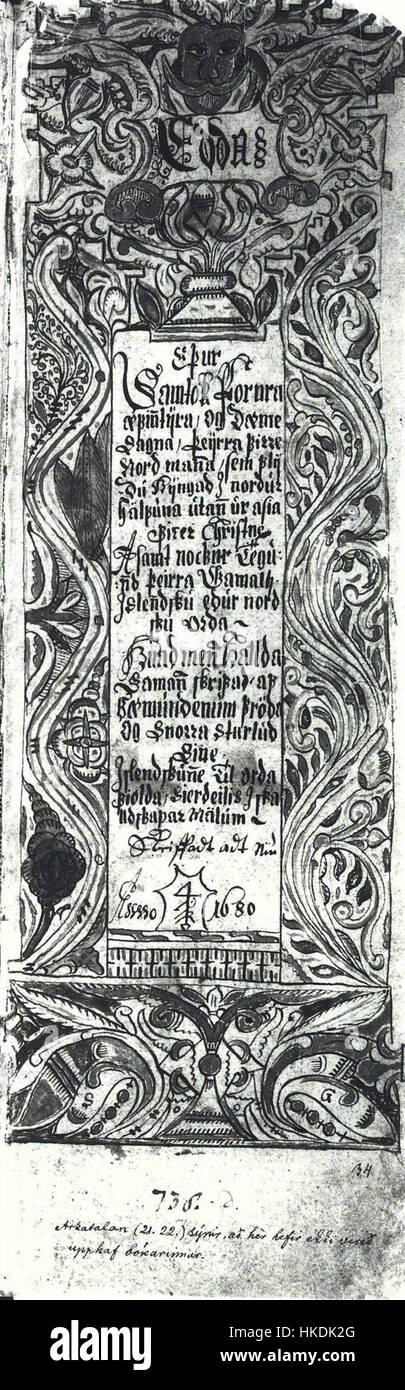 Edda
Epter
Samtok Fornra
æfintyra, og Dæme
Sagna, Þeyrra
Nordmana, sem
nordur
hálfuna utan ur asia
Epter Christne
Asamt nockur
þeirra Gamallr
Islendsku edur nord
sku Orda ~
Huad men hallda
Saman skrifad, af
Sæmundenum frode
og Snorra Sturlus
Sine
Islendskune Til orda
fiolda, Sierdeilis Ska
ldskapar Málum ~
Skrifadt adt niu
Anno 1680
34
738.
Arkatalan (21. 22.) sýnir, að hér hefir ekki verið
upphaf bókarinnar.
alamy
Image ID: HKDK2G
www.alamy.com